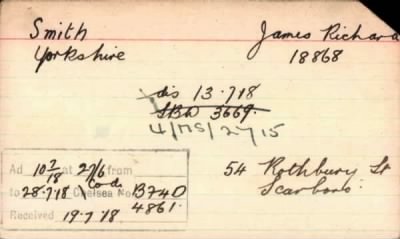 Smith James Richard
Yorkshire 18868
dis 13.7.18
SBW 3669.
4/MS/2715
54 Rothbury St
Scarboro'
Ad 10/7/18 at 27/6 from
to 28.7.18 Chelsea No. B74D
4861.
Received 19.7.18.